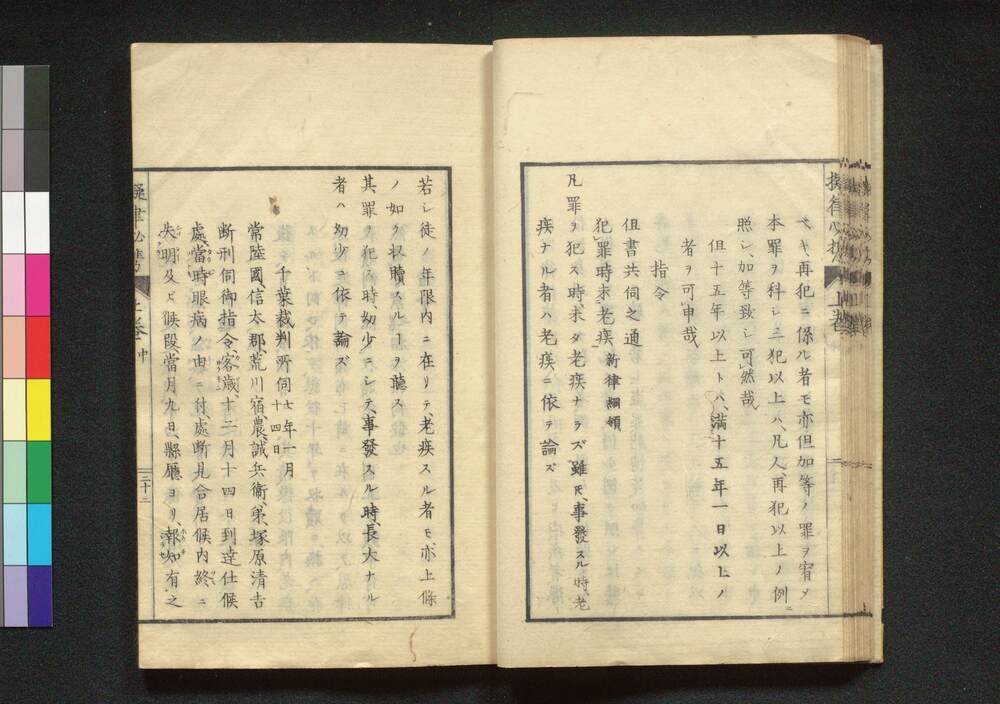 スヘキ、再犯ニ係ル者モ亦但加等ノ罪ヲ宥メ
本罪ヲ科シ三犯以上ハ、凡人、再犯以上ノ例ニ
照シ、加等致シ可然哉
但十五年以上トハ、満十五年一日以上ノ
者ヲ可申哉
指令
但書共伺之通
犯罪時未老疾 新律綱領
凡罪ヲ犯ス時、未タ老疾ナラズ雖𪜈、事發スル時、老
疾ナル者ハ老疾ニ依テ論ズ
若シ徒ノ年限内ニ在リテ、老疾スル者モ、亦上條
ノ如ク収贖スルヿヲ聽ス
其罪ヲ犯ス時、幼少ニシテ、事發スル時、長大ナル
者ハ幼少ニ依テ論ズ
千葉裁判所伺 七年一月十四日
常陸國、信太郡荒川宿農、誠兵衛、弟、塚原清吉
断刑伺御指令、客歳、十二月十四日到達仕候
處、當時眼病ノ由ニ付、處断見合居候内終ニ
失明及ヒ候段當月九日、縣廳ヨリ、報知有之
上巻 中
三十二